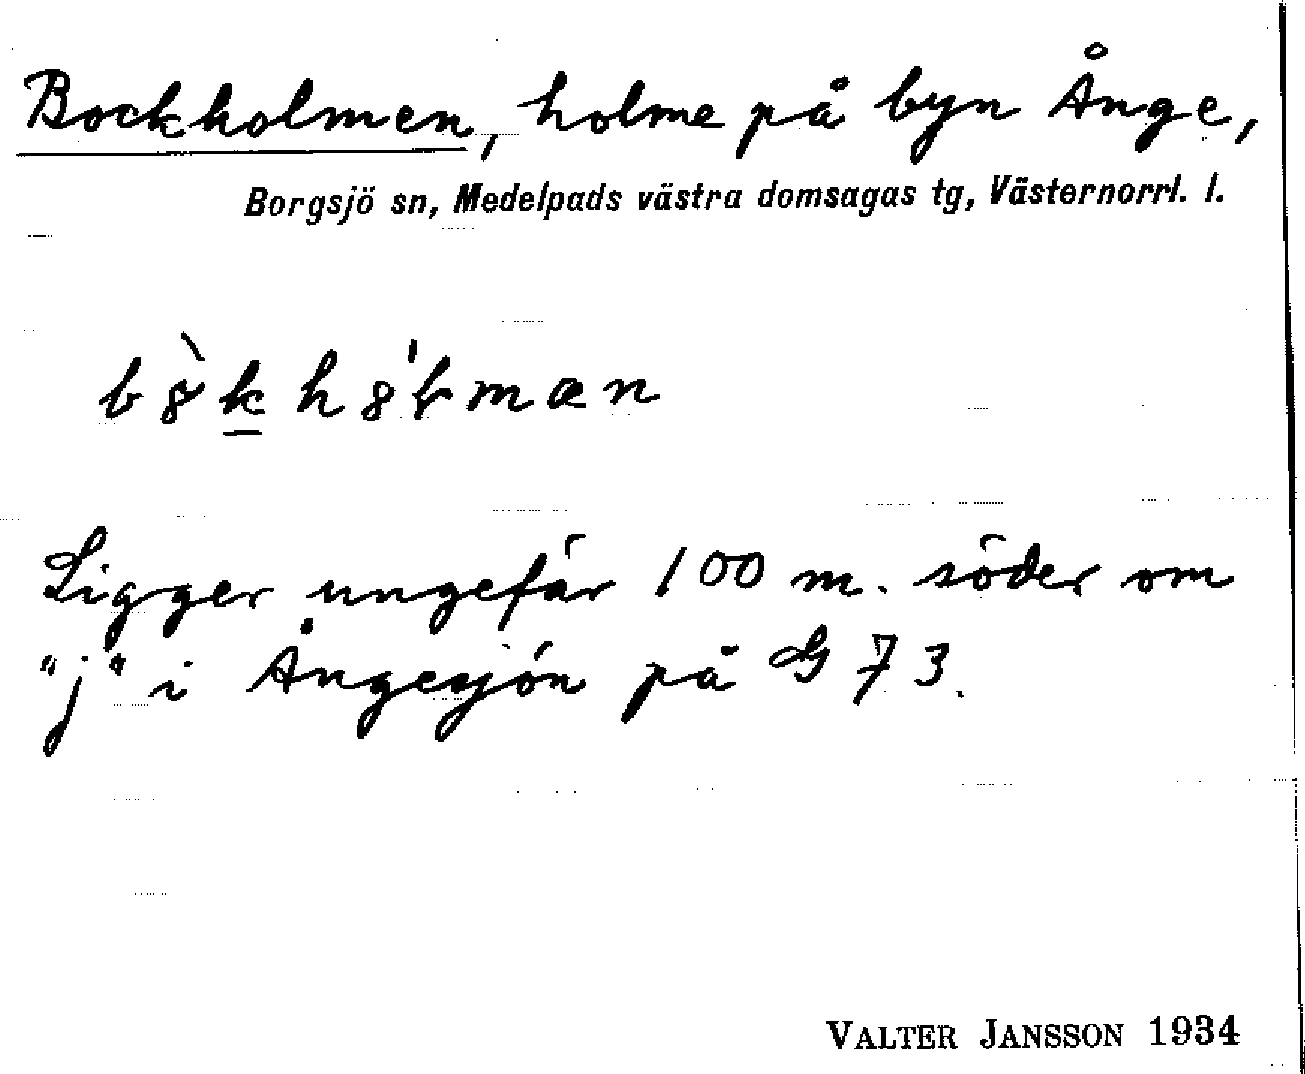 Bockholmen, holme på byn Ånge,
Borgsjö sn, Medelpads västra domsagas tg, Västernorrl. l.
Ligger ungefär 100 m. söder om
"j" i Ångesjön på G 73.
VALTER JANSSON 1934